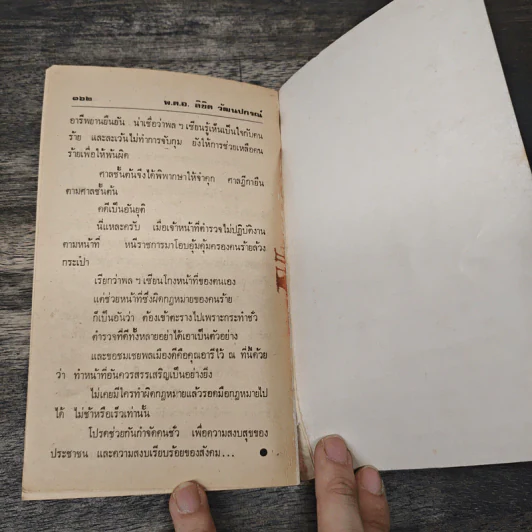 ๑๖๒ พ.ต.อ. ลิขิต วัฒนปกรณ์
อารีพยานยืนยัน น่าเชื่อว่าพล ฯ เซียนรู้เห็นเป็นใจกับคน
ร้าย และละเว้นไม่ทำการจับกุม ยังให้การช่วยเหลือคน
ร้ายเพื่อให้พ้นผิด
ศาลชั้นต้นจึงได้พิพากษาให้จำคุก ศาลฎีกายืน
ตามศาลชั้นต้น
คดีเป็นอันยุติ
นี่แหละครับ เมื่อเจ้าหน้าที่ตำรวจไม่ปฏิบัติงาน
ตามหน้าที่ หนีราชการมาโอบอุ้มคุ้มครองคนร้ายล้วง
กระเป๋า
เรียกว่าพล ฯ เซียนโกงหน้าที่ของตนเอง
แต่ช่วยหน้าที่ซึ่งผิดกฎหมายของคนร้าย
ก็เป็นอันว่า ต้องเข้าตะรางไปเพราะกระทำชั่ว
ตำรวจที่ดีทั้งหลายอย่าได้เอาเป็นตัวอย่าง
และขอชมเชยพลเมืองดีคือคุณอารีไว้ ณ ที่นี้ด้วย
ว่า ทำหน้าที่อันควรสรรเสริญเป็นอย่างยิ่ง
ไม่เคยมีใครทำผิดกฎหมายแล้วรอดมือกฎหมายไป
ได้ ไม่ช้าหรือเร็วเท่านั้น
โปรดช่วยกันกำจัดคนชั่ว เพื่อความสงบสุขของ
ประชาชน และความสงบเรียบร้อยของสังคม... ●